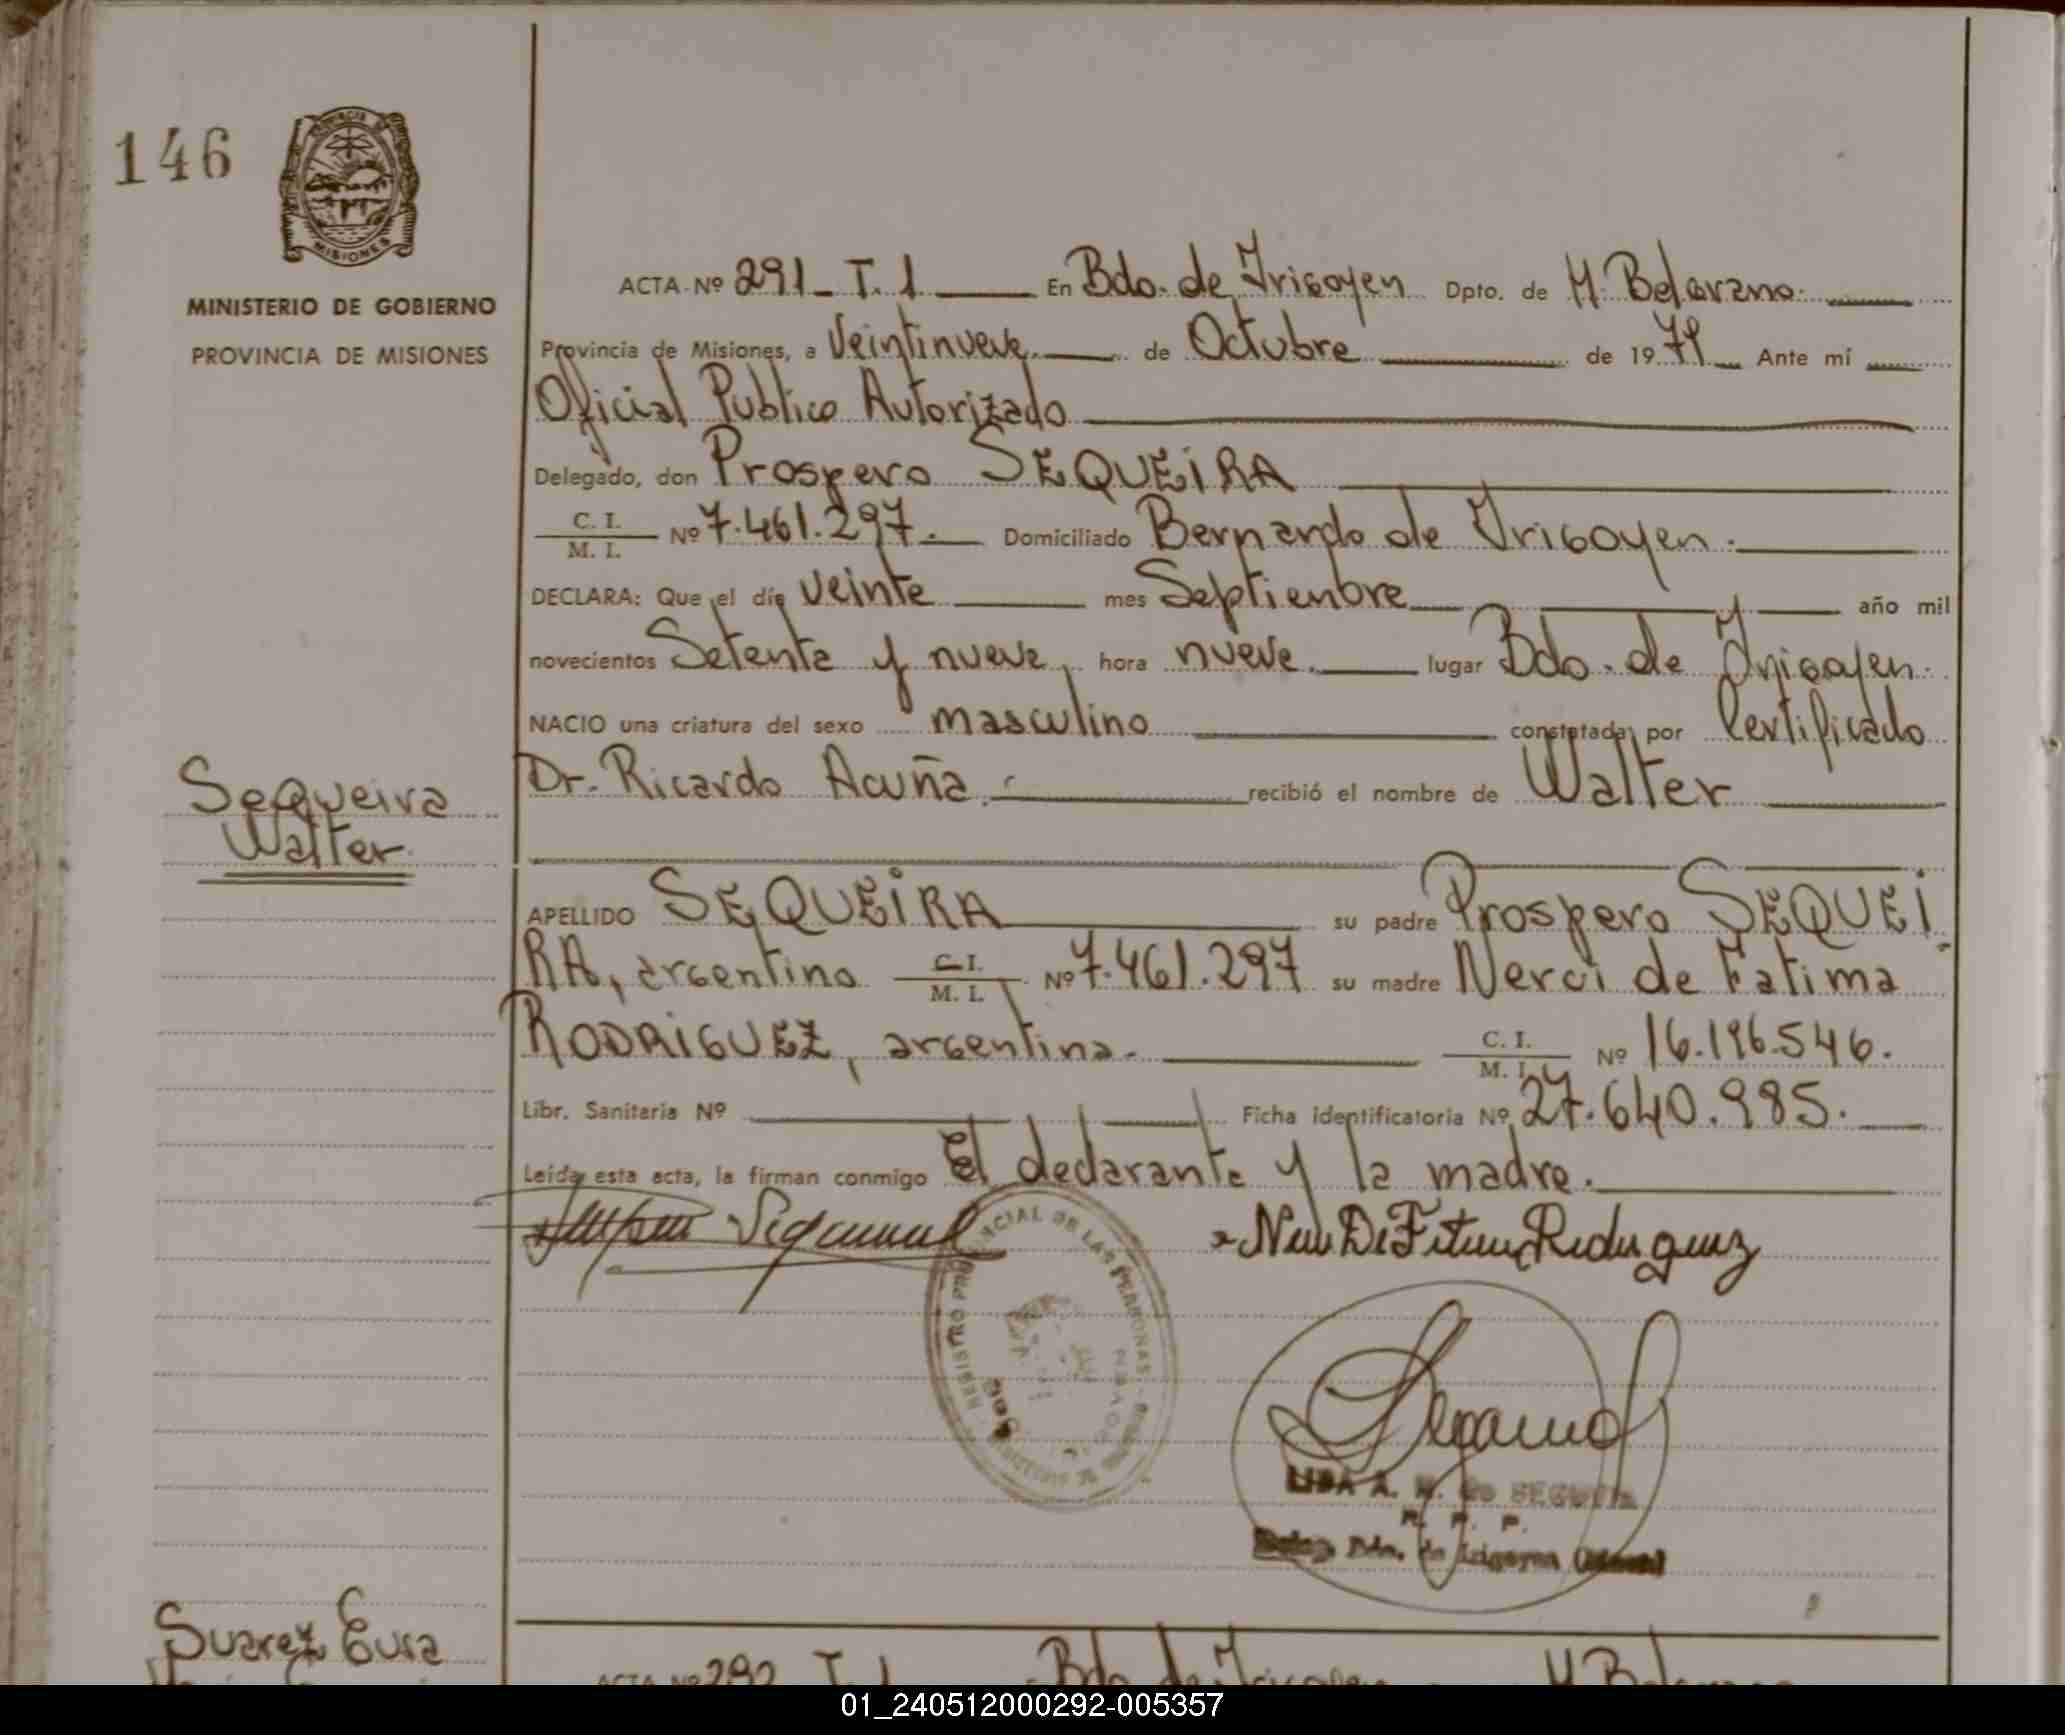 146
MISIONES
MINISTERIO DE GOBIERNO
PROVINCIA DE MISIONES
ACTA Nº 291_ T. 1 En Bdo. de Irigoyen Dpto. de M. Belgrano.
Provincia de Misiones, a Veintinueve de Octubre de 1979 Ante mí
Oficial Publico Autorizado
Delegado, don Prospero SEQUEIRA
C. I. / M. I. Nº 7.461.297. Domiciliado Bernardo de Irigoyen.
DECLARA: Que el día Veinte mes Septiembre año mil
novecientos Setenta y nueve, hora nueve. lugar Bdo. de Irigoyen.
NACIO una criatura del sexo masculino constatada por Certificado
Dr. Ricardo Acuña. recibió el nombre de Walter
Sequeira
Walter
APELLIDO SEQUEIRA su padre Prospero SEQUEI
RA, argentino C. I. / M. I. Nº 7.461.297 su madre Nerci de Fatima
RODRIGUEZ, argentina. C. I. / M. I. Nº 16.196.546.
Libr. Sanitaria Nº Ficha identificatoria Nº 27.640.985.
Leída esta acta, la firman conmigo El declarante y la madre.
REGISTRO PROVINCIAL DE LAS PERSONAS
LIDA A. de SEGOVIA
R. P. P.
Bdo. de Irigoyen
Suarez
ACTA Nº 292 T. 1 Bdo. de Irigoyen M. Belgrano
01_240512000292-005357